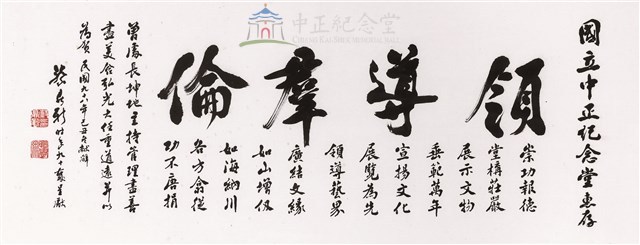 中正紀念堂
CHIANG KAI-SHEK MEMORIAL HALL
國立中正紀念堂惠存
領導羣倫
崇功報德
堂構莊嚴
展示文物
垂範萬年
宣揚文化
展覽為先
領導藝界
廣結文緣
如山增仞
如海納川
各方翕從
功不唐捐
曾處長坤地主持管理盡善
盡美弘光大任重道遠以
為賀 民國九八年己丑
時年九十